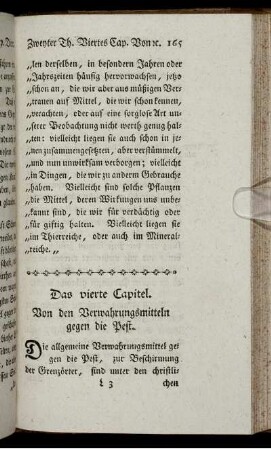 Zweyter Th. Viertes Cap. Von ꝛc. 165
„len derselben, in besondern Jahren oder
„Jahrszeiten häufig hervorwachsen, jetzo
„schon an, die wir aber aus müßigen Ver-
„trauen auf Mittel, die wir schon kennen,
„verachten, oder auf eine sorglose Art un-
„serer Beobachtung nicht werth genug hal-
„ten: vielleicht liegen sie auch schon in je-
„nen zusammengesetzten, aber verstümmelt,
„und nun unwirksam verborgen; vielleicht
„in Dingen, die wir zu anderm Gebrauche
„haben. Vielleicht sind solche Pflanzen
„die Mittel, deren Wirkungen uns unbe-
„kannt sind, die wir für verdächtig oder
„für giftig halten. Vielleicht liegen sie
„im Thierreiche, oder auch im Mineral-
„reiche.„
Das vierte Capitel.
Von den Verwahrungsmitteln
gegen die Pest.
Die allgemeine Verwahrungsmittel ge-
gen die Pest, zur Beschirmung
der Grenzörter, sind unter den christli-
L 3 chen